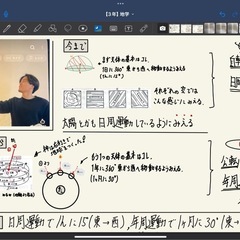 【3年】地学
今まで
まず天体の基本はコレ
1日に360°東から西へ移動するようみえる
(1hに15°)
それぞれの空では
こんな感じにみえる
太陽とかも日周運動しているようにみえる
もう1つの天体の基本はコレ
1年に360°東から西へ移動するようみえる
(1ヶ月に30°)
公転
年周
日周運動で1hに15°(東→西),年周運動で1ヶ月に30°(東→